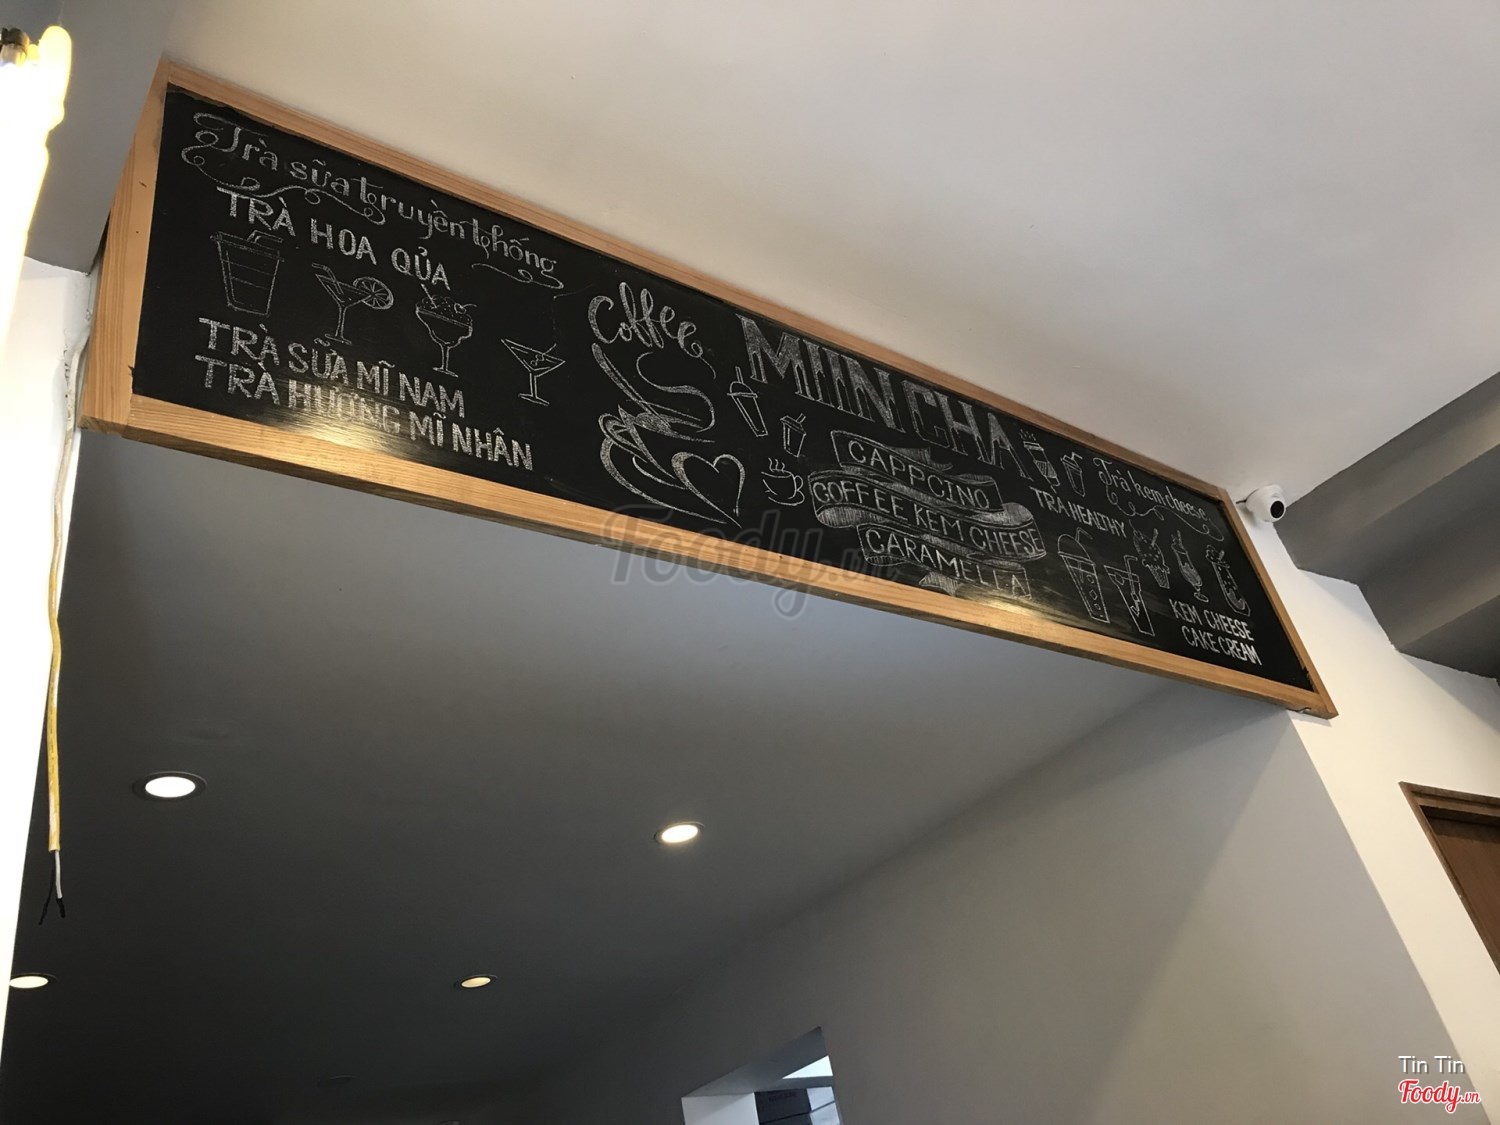 Trà sữa truyền thống
TRÀ HOA QỦA
TRÀ SỮA MĨ NAM
TRÀ HƯƠNG MĨ NHÂN
Coffee
MIIN CHA
CAPPCINO
COFFEE KEM CHEESE
CARAMELLA
Trà kem cheese
TRÀ HEALTHY
KEM CHEESE
CAKE CREAM
Foody.vn
Tin Tin
Foody.vn